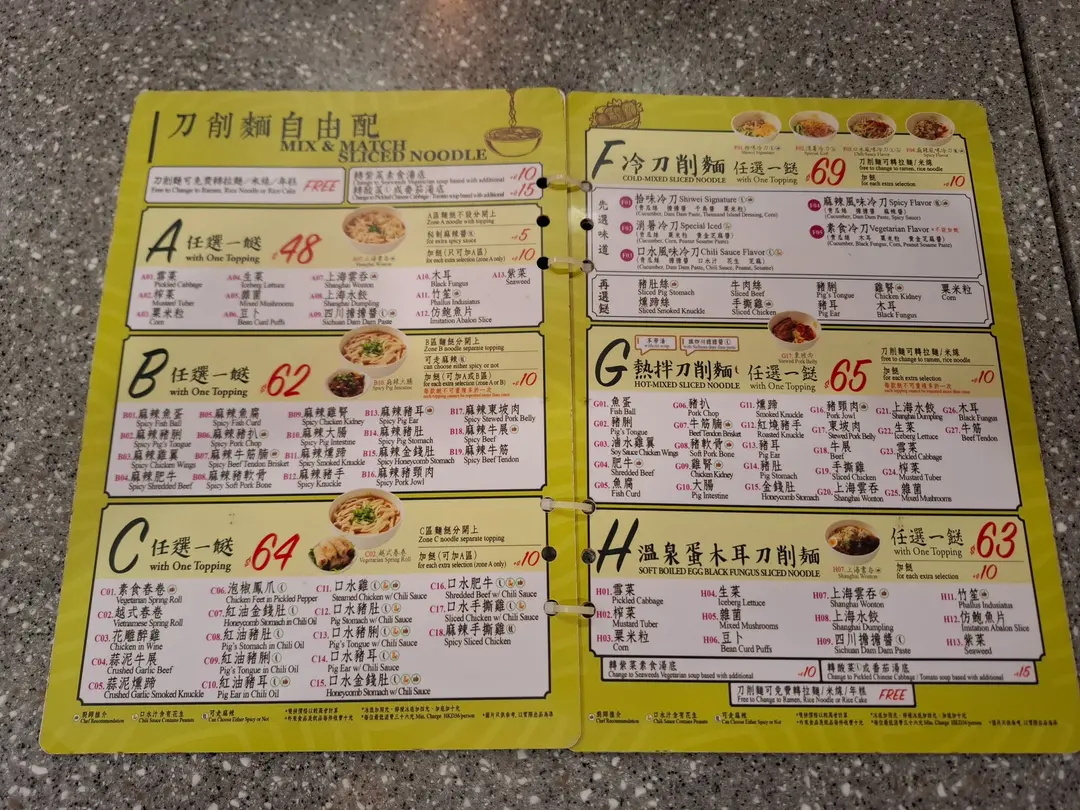 刀削麵自由配
MIX & MATCH
SLICED NOODLE
刀削麵可免費轉拉麵/米綫/年糕
Free to Change to Ramen, Rice Noodle or Rice Cake
FREE
轉紫菜素食湯底
Change to Seaweeds Vegetarian soup based with additional
+10
轉酸菜或番茄湯底
Change to Pickled Chinese Cabbage / Tomato soup based with additional
+15
A 任選一餸 $48
with One Topping
A02.上海雲吞
A區麵餸不設分開上
Zone A noodle with topping
秘制麻辣醬
for extra spicy sauce
+5
加餸(只可加A區)
for each extra selection (zone A only)
+10
A01.雪菜
Pickled Cabbage
A02.榨菜
Mustard Tuber
A03.粟米粒
Corn
A04.生菜
Iceberg Lettuce
A05.雜菌
Mixed Mushrooms
A06.豆卜
Bean Curd Puffs
A07.上海雲吞
Shanghai Wonton
A08.上海水餃
Shanghai Dumpling
A09.四川擔擔醬
Sichuan Dam Dam Paste
A10.木耳
Black Fungus
A11.竹笙
Phallus Indusiatus
A12.仿鮑魚片
Imitation Abalon Slice
A13.紫菜
Seaweed
B 任選一餸 $62
with One Topping
B10.麻辣大腸
Spicy Pig Intestine
B區麵餸分開上
Zone B noodle separate topping
可走麻辣
can choose either spicy or not
加餸(可加A或B區)
for each extra selection (zone A or B)
+10
B01.麻辣魚蛋
Spicy Fish Ball
B02.麻辣豬脷
Spicy Pig's Tongue
B03.麻辣雞翼
Spicy Chicken Wings
B04.麻辣肥牛
Spicy Shredded Beef
B05.麻辣魚腐
Spicy Fish Curd
B06.麻辣豬扒
Spicy Pork Chop
B07.麻辣牛筋腩
Spicy Beef Tendon Brisket
B08.麻辣豬軟骨
Spicy Soft Pork Bone
B09.麻辣雞腎
Spicy Chicken Kidney
B10.麻辣大腸
Spicy Pig Intestine
B11.麻辣燻蹄
Spicy Smoked Knuckle
B12.麻辣豬手
Spicy Knuckle
B13.麻辣豬耳
Spicy Pig Ear
B14.麻辣豬肚
Spicy Pig Stomach
B15.麻辣金錢肚
Spicy Honeycomb Stomach
B16.麻辣豬頸肉
Spicy Pork Jowl
B17.麻辣東坡肉
Spicy Stewed Pork Belly
B18.麻辣牛展
Spicy Beef
B19.麻辣牛筋
Spicy Beef Tendon
C 任選一餸 $64
with One Topping
C02.越式春卷
Vietnamese Spring Roll
C區麵餸分開上
Zone C noodle separate topping
加餸(可加A區)
for each extra selection (zone A only)
+10
C01.素食春卷
Vegetarian Spring Roll
C02.越式春卷
Vietnamese Spring Roll
C03.花雕醉雞
Chicken in Wine
C04.蒜泥牛展
Crushed Garlic Beef
C05.蒜泥燻蹄
Crushed Garlic Smoked Knuckle
C06.泡椒鳳爪
Chicken Feet in Pickled Pepper
C07.紅油金錢肚
Honeycomb Stomach in Chili Oil
C08.紅油豬肚
Pig's Stomach in Chili Oil
C09.紅油豬脷
Pig's Tongue in Chili Oil
C10.紅油豬耳
Pig Ear in Chili Oil
C11.口水雞
Steamed Chicken w/ Chili Sauce
C12.口水豬肚
Pig Stomach w/ Chili Sauce
C13.口水豬脷
Pig's Tongue w/ Chili Sauce
C14.口水豬耳
Pig Ear w/ Chili Sauce
C15.口水金錢肚
Honeycomb Stomach w/ Chili Sauce
C16.口水肥牛
Shredded Beef w/ Chili Sauce
C17.口水手撕雞
Sliced Chicken w/ Chili Sauce
C18.麻辣手撕雞
Spicy Sliced Chicken
廚師推介
Chef Recommendation
口水汁含有花生
Chili Sauce Contains Peanuts
可走麻辣
Can Choose Either Spicy or Not
F 冷刀削麵 任選一餸 $69
COLD-MIXED SLICED NOODLE with One Topping
刀削麵可轉拉麵/米綫
free to change to ramen, rice noodle
加餸
for each extra selection
+10
先選味道
F01 恰味冷刀Shiwei Signature
(青瓜絲 擔擔醬 千島醬 粟米粒)
(Cucumber, Dam Dam Paste, Thousand Island Dressing, Corn)
F02 消暑冷刀Special Iced
(Cucumber, Dam Dam Paste, Corn, Peanut Sesame Paste)
F03 口水風味冷刀Chili Sauce Flavor
(青瓜絲 擔擔醬 口水汁 花生 芝麻)
(Cucumber, Dam Dam Paste, Chili Sauce, Peanut, Sesame)
F04 麻辣風味冷刀Spicy Flavor
(青瓜絲 擔擔醬 麻辣醬)
(Cucumber, Dam Dam Paste, Spicy Sauce)
F05 素食冷刀Vegetarian Flavor
(Cucumber, Black Fungus, Corn, Peanut Sesame Paste)
再選餸
豬肚絲
Sliced Pig Stomach
燻蹄絲
Sliced Smoked Knuckle
牛肉絲
Sliced Beef
手撕雞
Sliced Chicken
豬脷
Pig's Tongue
豬耳
Pig Ear
雞腎
Chicken Kidney
木耳
Black Fungus
粟米粒
Corn
G 熱拌刀削麵 任選一餸 $65
HOT-MIXED SLICED NOODLE with One Topping
G17.東坡肉
Stewed Pork Belly
刀削麵可轉拉麵/米綫
free to change to ramen, rice noodle
加餸
for each extra selection
+10
G01.魚蛋
Fish Ball
G02.豬脷
Pig's Tongue
G03.滷水雞翼
Soy Sauce Chicken Wings
G04.肥牛
Shredded Beef
G05.魚腐
Fish Curd
G06.豬扒
Pork Chop
G07.牛筋腩
Beef Tendon Brisket
G08.豬軟骨
Soft Pork Bone
G09.雞腎
Chicken Kidney
G10.大腸
Pig Intestine
G11.燻蹄
Smoked Knuckle
G12.紅燒豬手
Roasted Knuckle
G13.豬耳
Pig Ear
G14.豬肚
Pig Stomach
G15.金錢肚
Honeycomb Stomach
G16.豬頸肉
Pork Jowl
G17.東坡肉
Stewed Pork Belly
G18.牛展
Beef
G19.手撕雞
Sliced Chicken
G20.上海雲吞
Shanghai Wonton
G21.上海水餃
Shanghai Dumpling
G22.生菜
Iceberg Lettuce
G23.雪菜
Pickled Cabbage
G24.榨菜
Mustard Tuber
G25.雜菌
Mixed Mushrooms
G26.木耳
Black Fungus
G27.牛筋
Beef Tendon
H 溫泉蛋木耳刀削麵 任選一餸 $63
SOFT BOILED EGG BLACK FUNGUS SLICED NOODLE with One Topping
H07.上海雲吞
Shanghai Wonton
加餸
for each extra selection
+10
H01.雪菜
Pickled Cabbage
H02.榨菜
Mustard Tuber
H03.粟米粒
Corn
H04.生菜
Iceberg Lettuce
H05.雜菌
Mixed Mushrooms
H06.豆卜
Bean Curd Puffs
H07.上海雲吞
Shanghai Wonton
H08.上海水餃
Shanghai Dumpling
H09.四川擔擔醬
Sichuan Dam Dam Paste
H11.竹笙
Phallus Indusiatus
H12.仿鮑魚片
Imitation Abalon Slice
H13.紫菜
Seaweed
轉紫菜素食湯底
Change to Seaweeds Vegetarian soup based with additional
+10
轉酸菜或番茄湯底
Change to Pickled Chinese Cabbage / Tomato soup based with additional
+15
刀削麵可免費轉拉麵/米綫/年糕
Free to Change to Ramen, Rice Noodle or Rice Cake
FREE
廚師推介
Chef Recommendation
口水汁含有花生
Chili Sauce Contains Peanuts
可走麻辣
Can Choose Either Spicy or Not